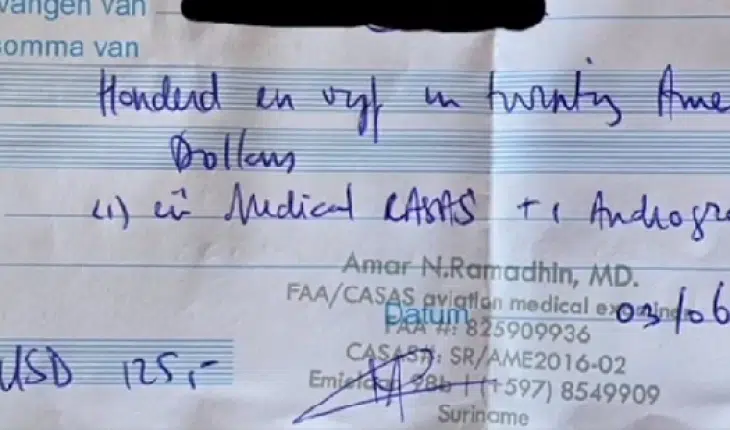 vangen van
somma van
Honderd en vyf en twintig Ame
Dollars
(1) Medical CASAS + 1
Amar N.Ramadhin, MD.
FAA/CASAS aviation medical examiner
Datum 03/06
FAA #: 825909936
CASAS#: SR/AME2016-02
USD 125,-
98b | (+597) 8549909
Suriname